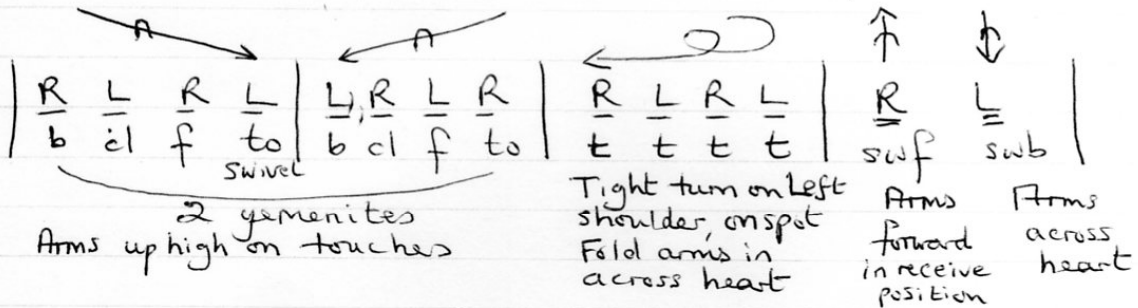 R L R L | L, R L R | R L R L | R L
b cl f to | b cl f to | t t t t | swf swb
swivel
2 yemenites
Arms up high on touches
Tight turn on Left
shoulder, on spot
Fold arms in
across heart
Arms
forward
in receive
position
Arms
across
heart